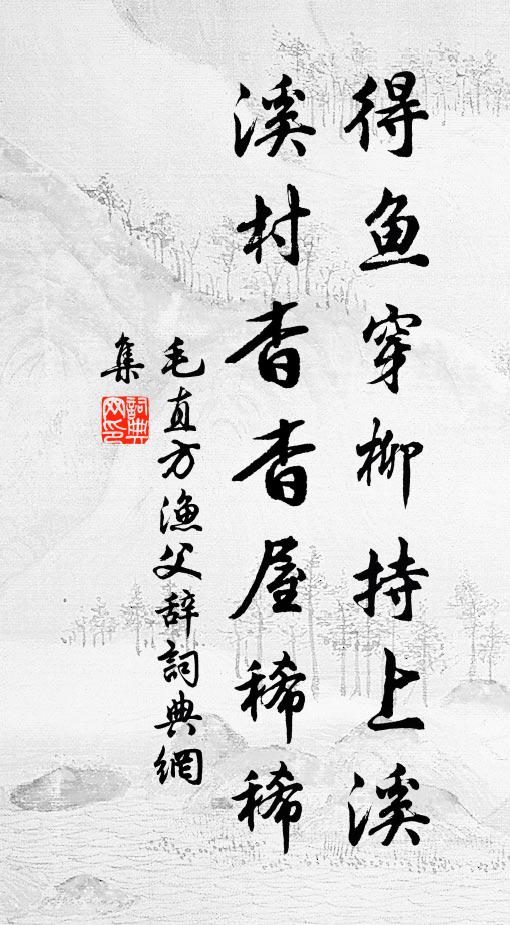 得鱼穿柳持上溪
溪村杳杳屋稀稀
毛直方漁父辞詞典網
集
詞典网印